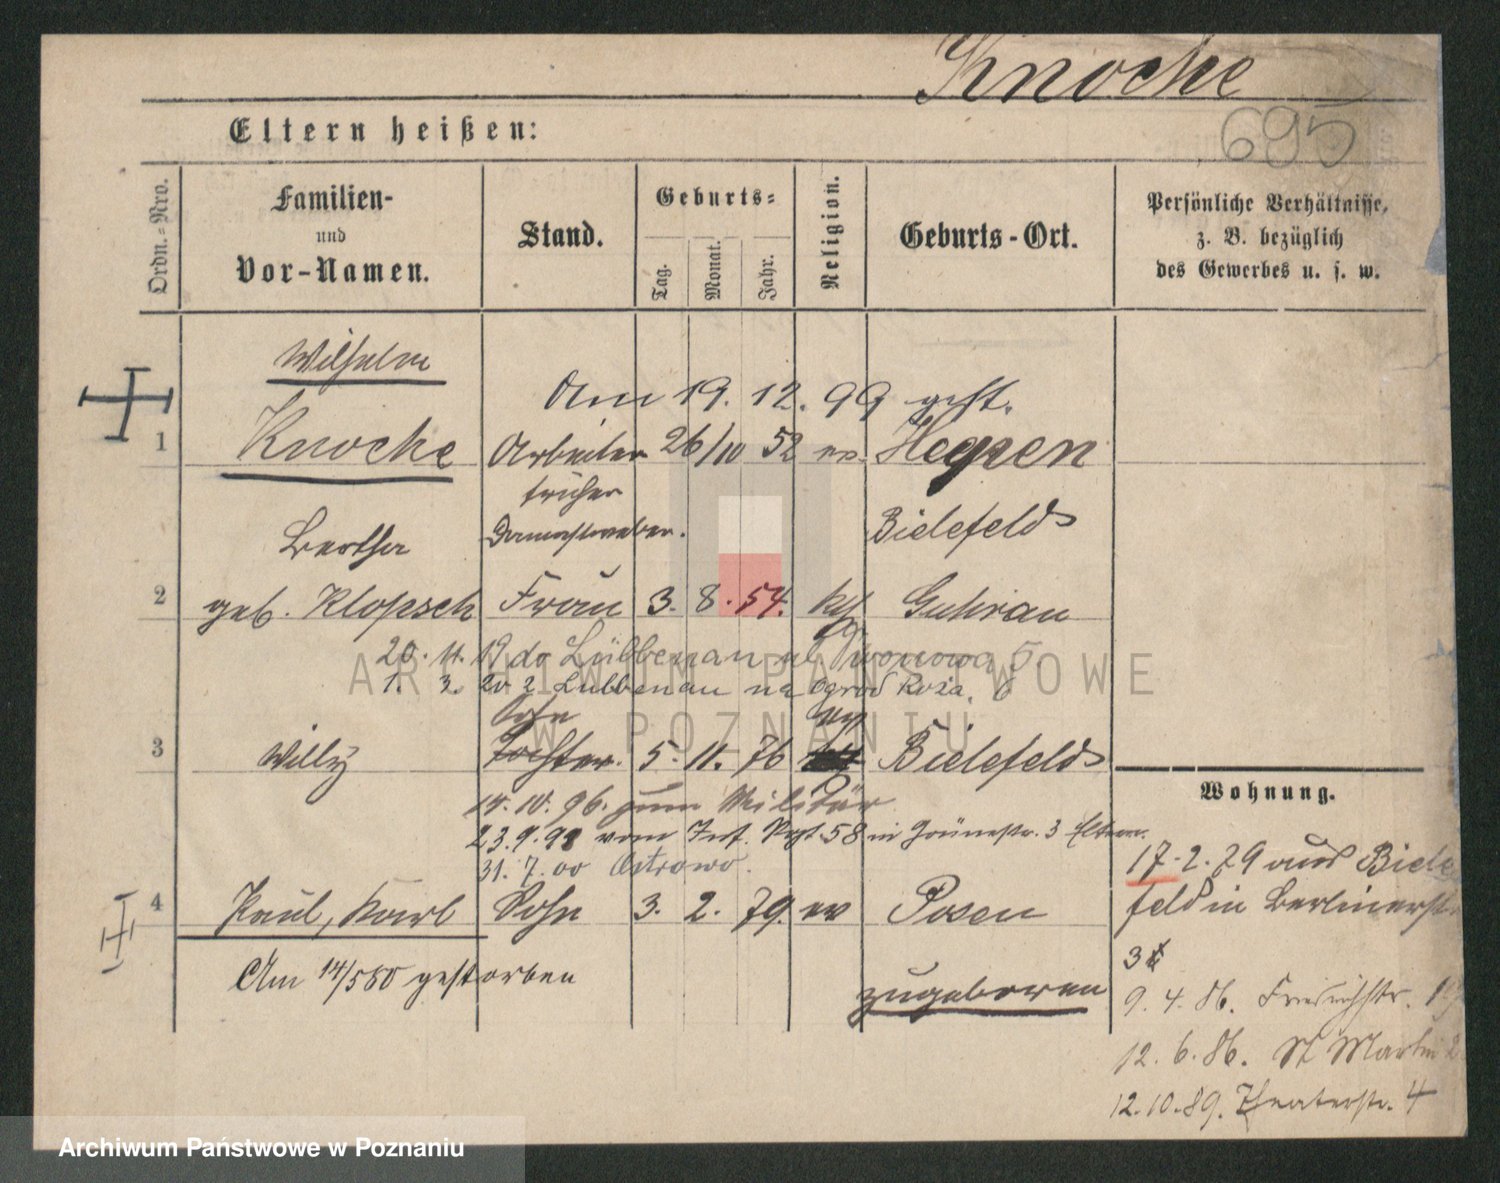 Knocke
695
Eltern heißen:
Ordn.-Nro.
Familien-
und
Vor-Namen.
Stand.
Geburts-
Tag.
Monat.
Jahr.
Religion.
Geburts-Ort.
Persönliche Verhältnisse,
z. B. bezüglich
des Gewerbes u. s. w.
Wilhelm
Am 19. 12. 99 gest.
1 Knocke Arbeiter 26/10 52 ev. Heepen
früher
Damastweber. Bielefeld
Bertha
2 geb. Klopsch Frau 3. 8. 54. kth Guhrau
20. 11. 19 do Lübbenau ul Iwonowa 5.
1. 3. 20 z Lubbenau na Ogrod Koza. 6
Sohn
3 Willy Tochter. 5. 11. 76 Bielefeld
14. 10. 96. zum Militär
23. 9. 98 vom Inf. Regt 58 in Grünestr. 3 Eltern.
31. 7. 00 Ostrowo.
4 Paul, Karl Sohn 3. 2. 79. ev Posen
Am 14/5 80 gestorben
zugeboren
Wohnung.
17.2.79 aus Biele
feld in Berlinerstr
3
9. 4. 86. Friedrichstr.
12. 6. 86. St Martin
12.10.89. Theaterstr. 4
ARCHIWUM PAŃSTWOWE
W POZNANIU
Archiwum Państwowe w Poznaniu